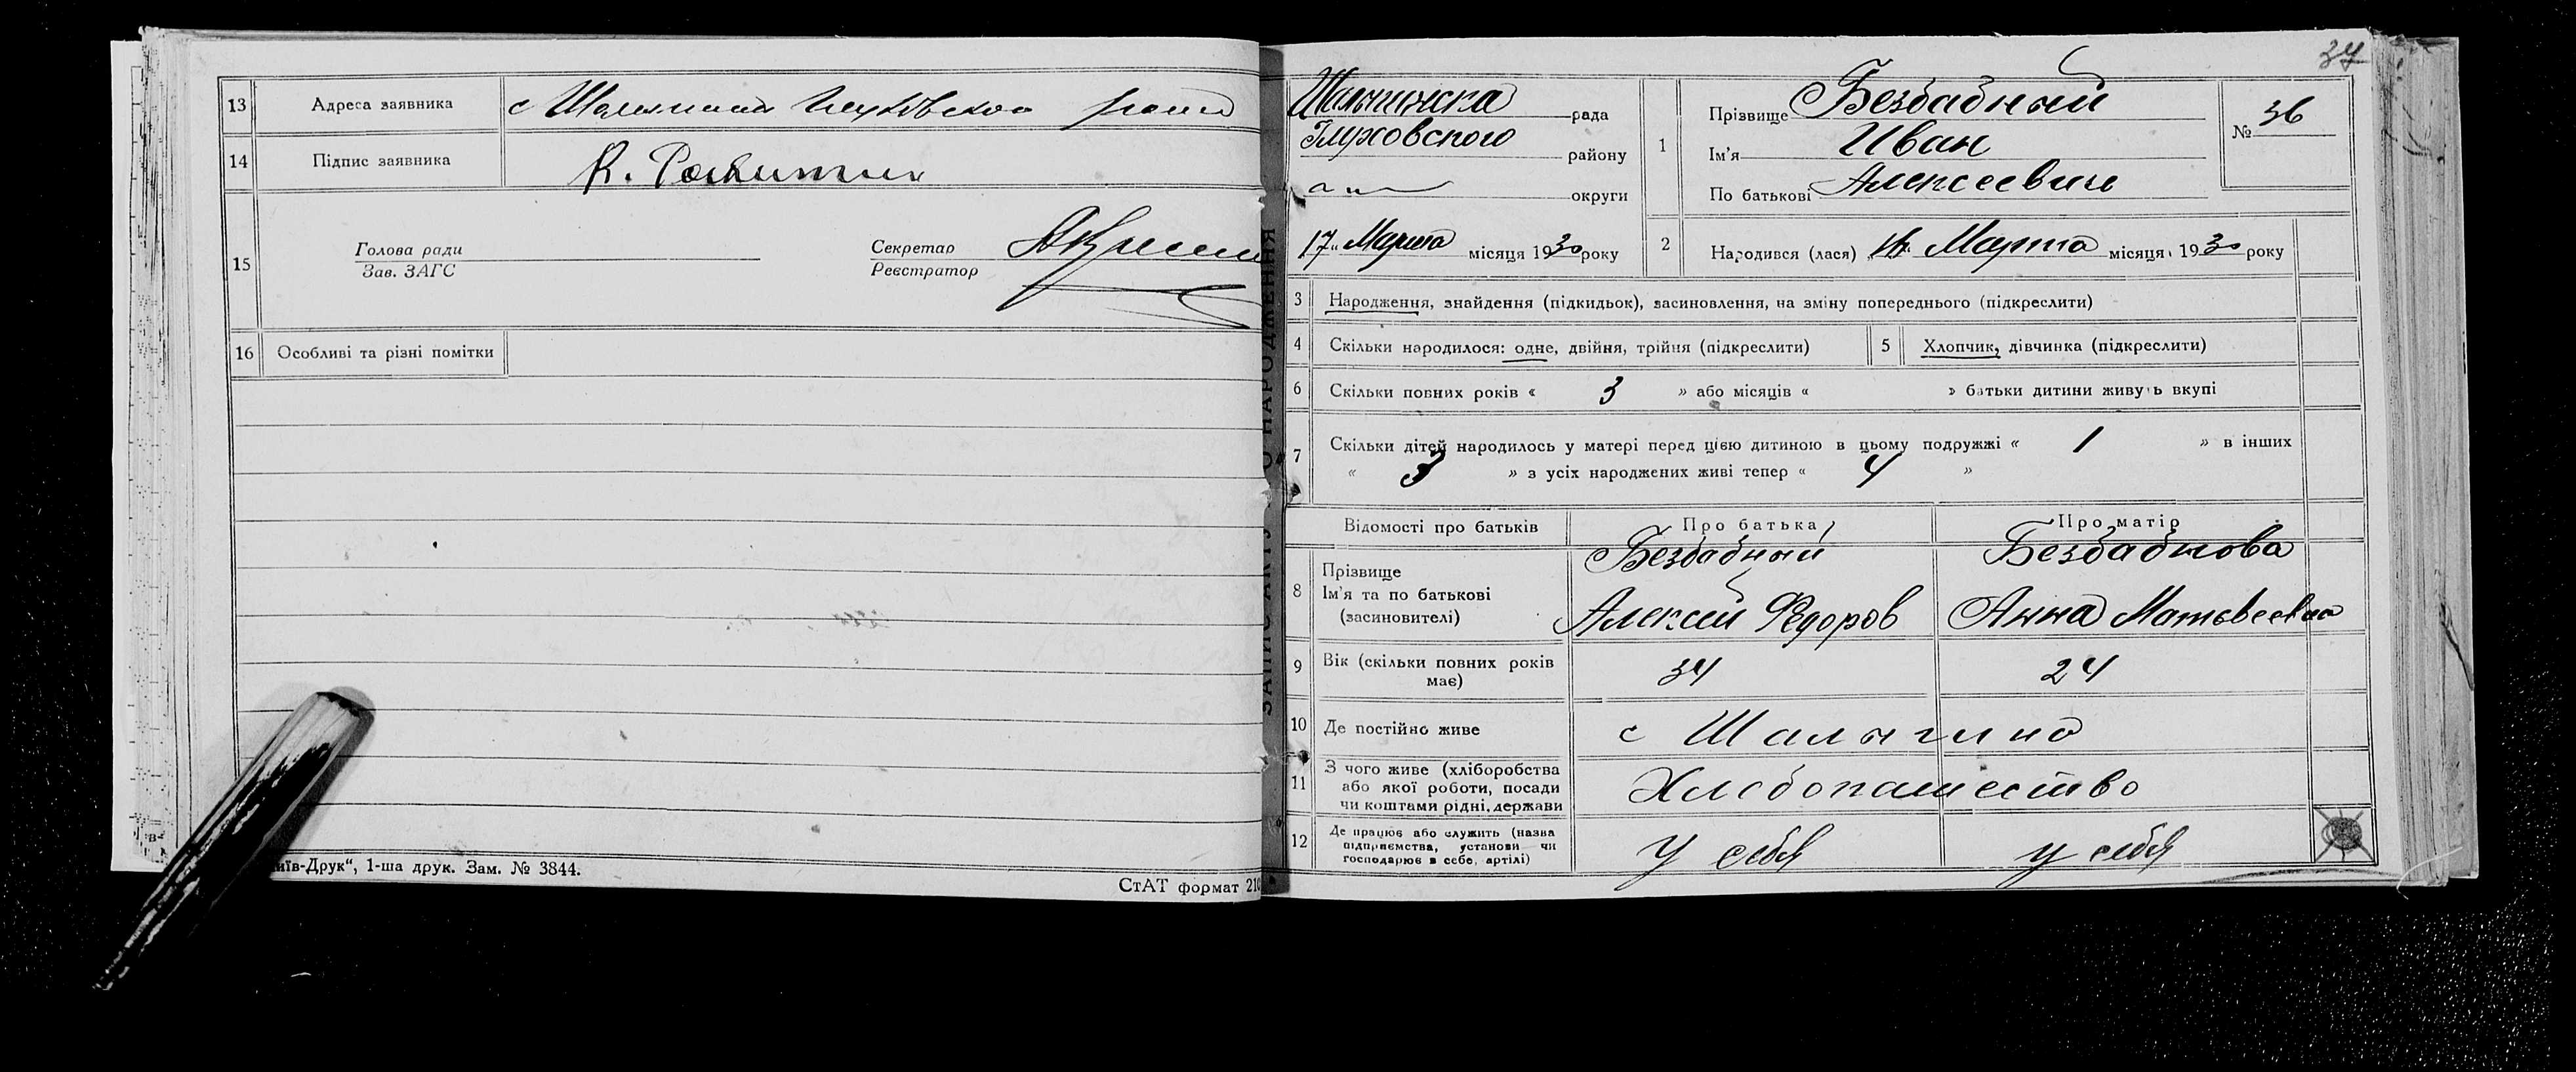 13 Адреса заявника с Шалыгина Глуховского района
14 Підпис заявника К. Ракитин
15 Голова ради
Зав. ЗАГС
Секретар
Реєстратор
16 Особливі та різні помітки
"Київ-Друк", 1-ша друк. Зам. № 3844.
СтАТ формат 210
ЗАПИС АКТУ ПРО НАРОДЖЕННЯ
37
Шалыгинска рада
Глуховского району
округи
17 Марта місяця 1930 року
1 Прізвище Безбабный
Ім'я Иван
По батькові Алексеевич
№ 36
2 Народився (лася) Марта місяця 1930 року
3 Народження, знайдення (підкидьок), засиновлення, на зміну попереднього (підкреслити)
4 Скільки народилося: одне, двійня, трійня (підкреслити) 5 Хлопчик, дівчинка (підкреслити)
6 Скільки повних років « 3 » або місяців « » батьки дитини живуть вкупі
7 Скільки дітей народилось у матері перед цією дитиною в цьому подружжі « 1 » в інших
« 3 » з усіх народжених живі тепер « 4 »
Відомості про батьків Про батька Про матір
8 Прізвище
Ім'я та по батькові
(засиновителі)
Безбабный
Алексей Федоров
Безбабнова
Анна Матвеевна
9 Вік (скільки повних років має) 34 24
10 Де постійно живе с Шалыгино
11 З чого живе (хліборобства
або якої роботи, посади
чи коштами рідні, держави
Хлебопашество
12 Де працює або служить (назва
підприємства, установи чи
господарює в себе, артілі)
у себя у себя